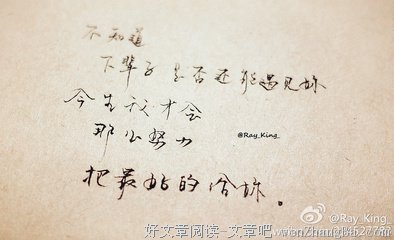 不知道
下辈子是否还能遇见妳
今生我才会
那么努力
@Ray_King_
把最好的给妳。
@Ray_King_
好文章阅读-文章吧